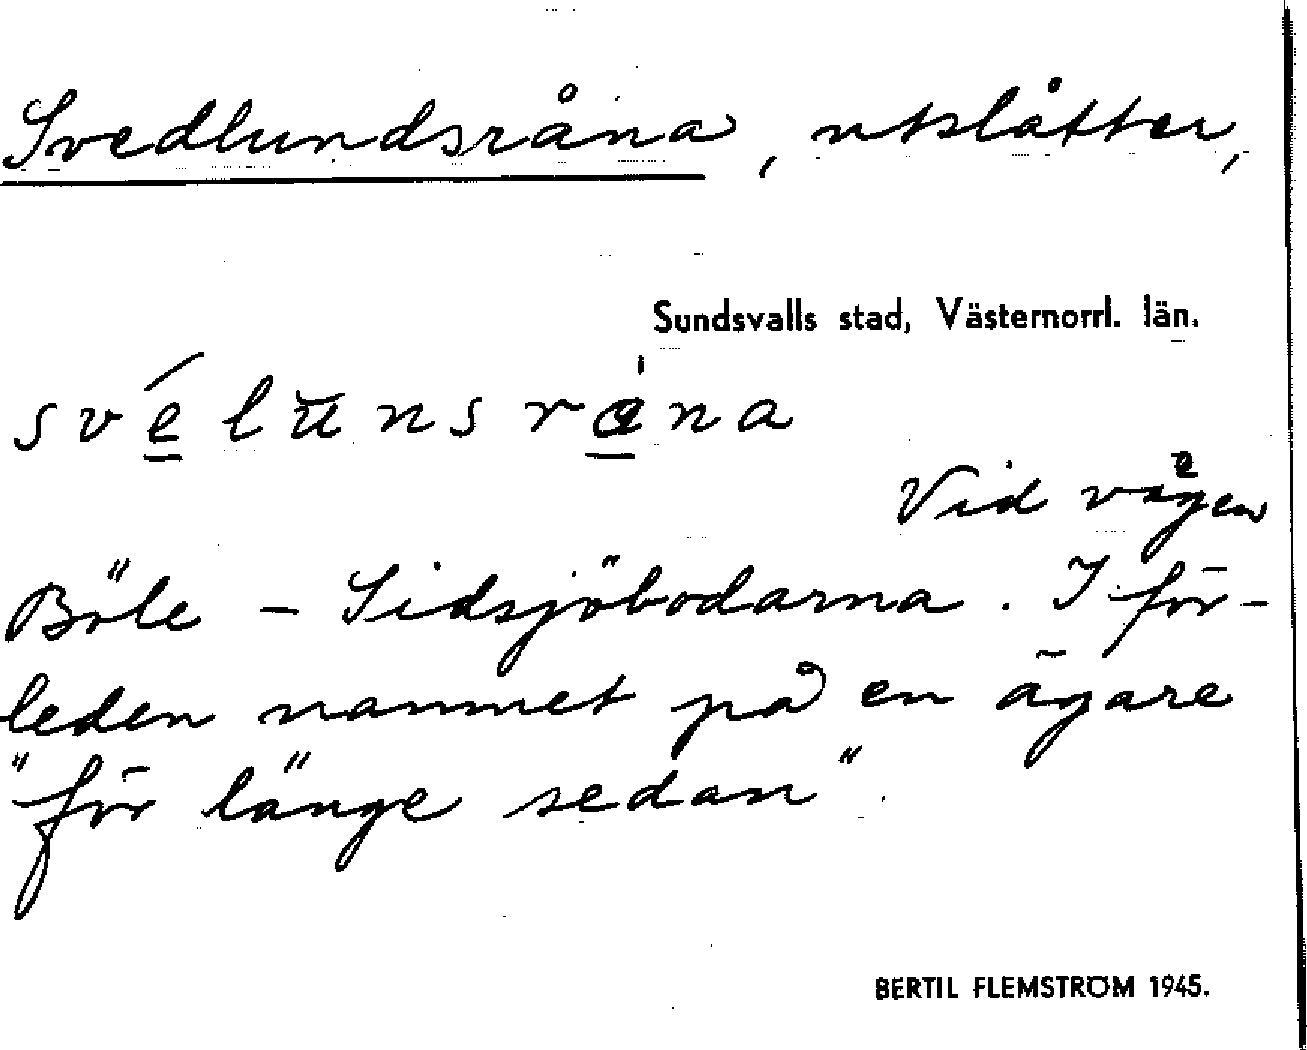 Svedlundsråna, utslåtter,
Sundsvalls stad, Västernorrl. län.
svélunsrána
Vid vägen
Böle - Sidsjöbodarna. I för-
leden namnet på en ägare
"för länge sedan".
BERTIL FLEMSTRÖM 1945.